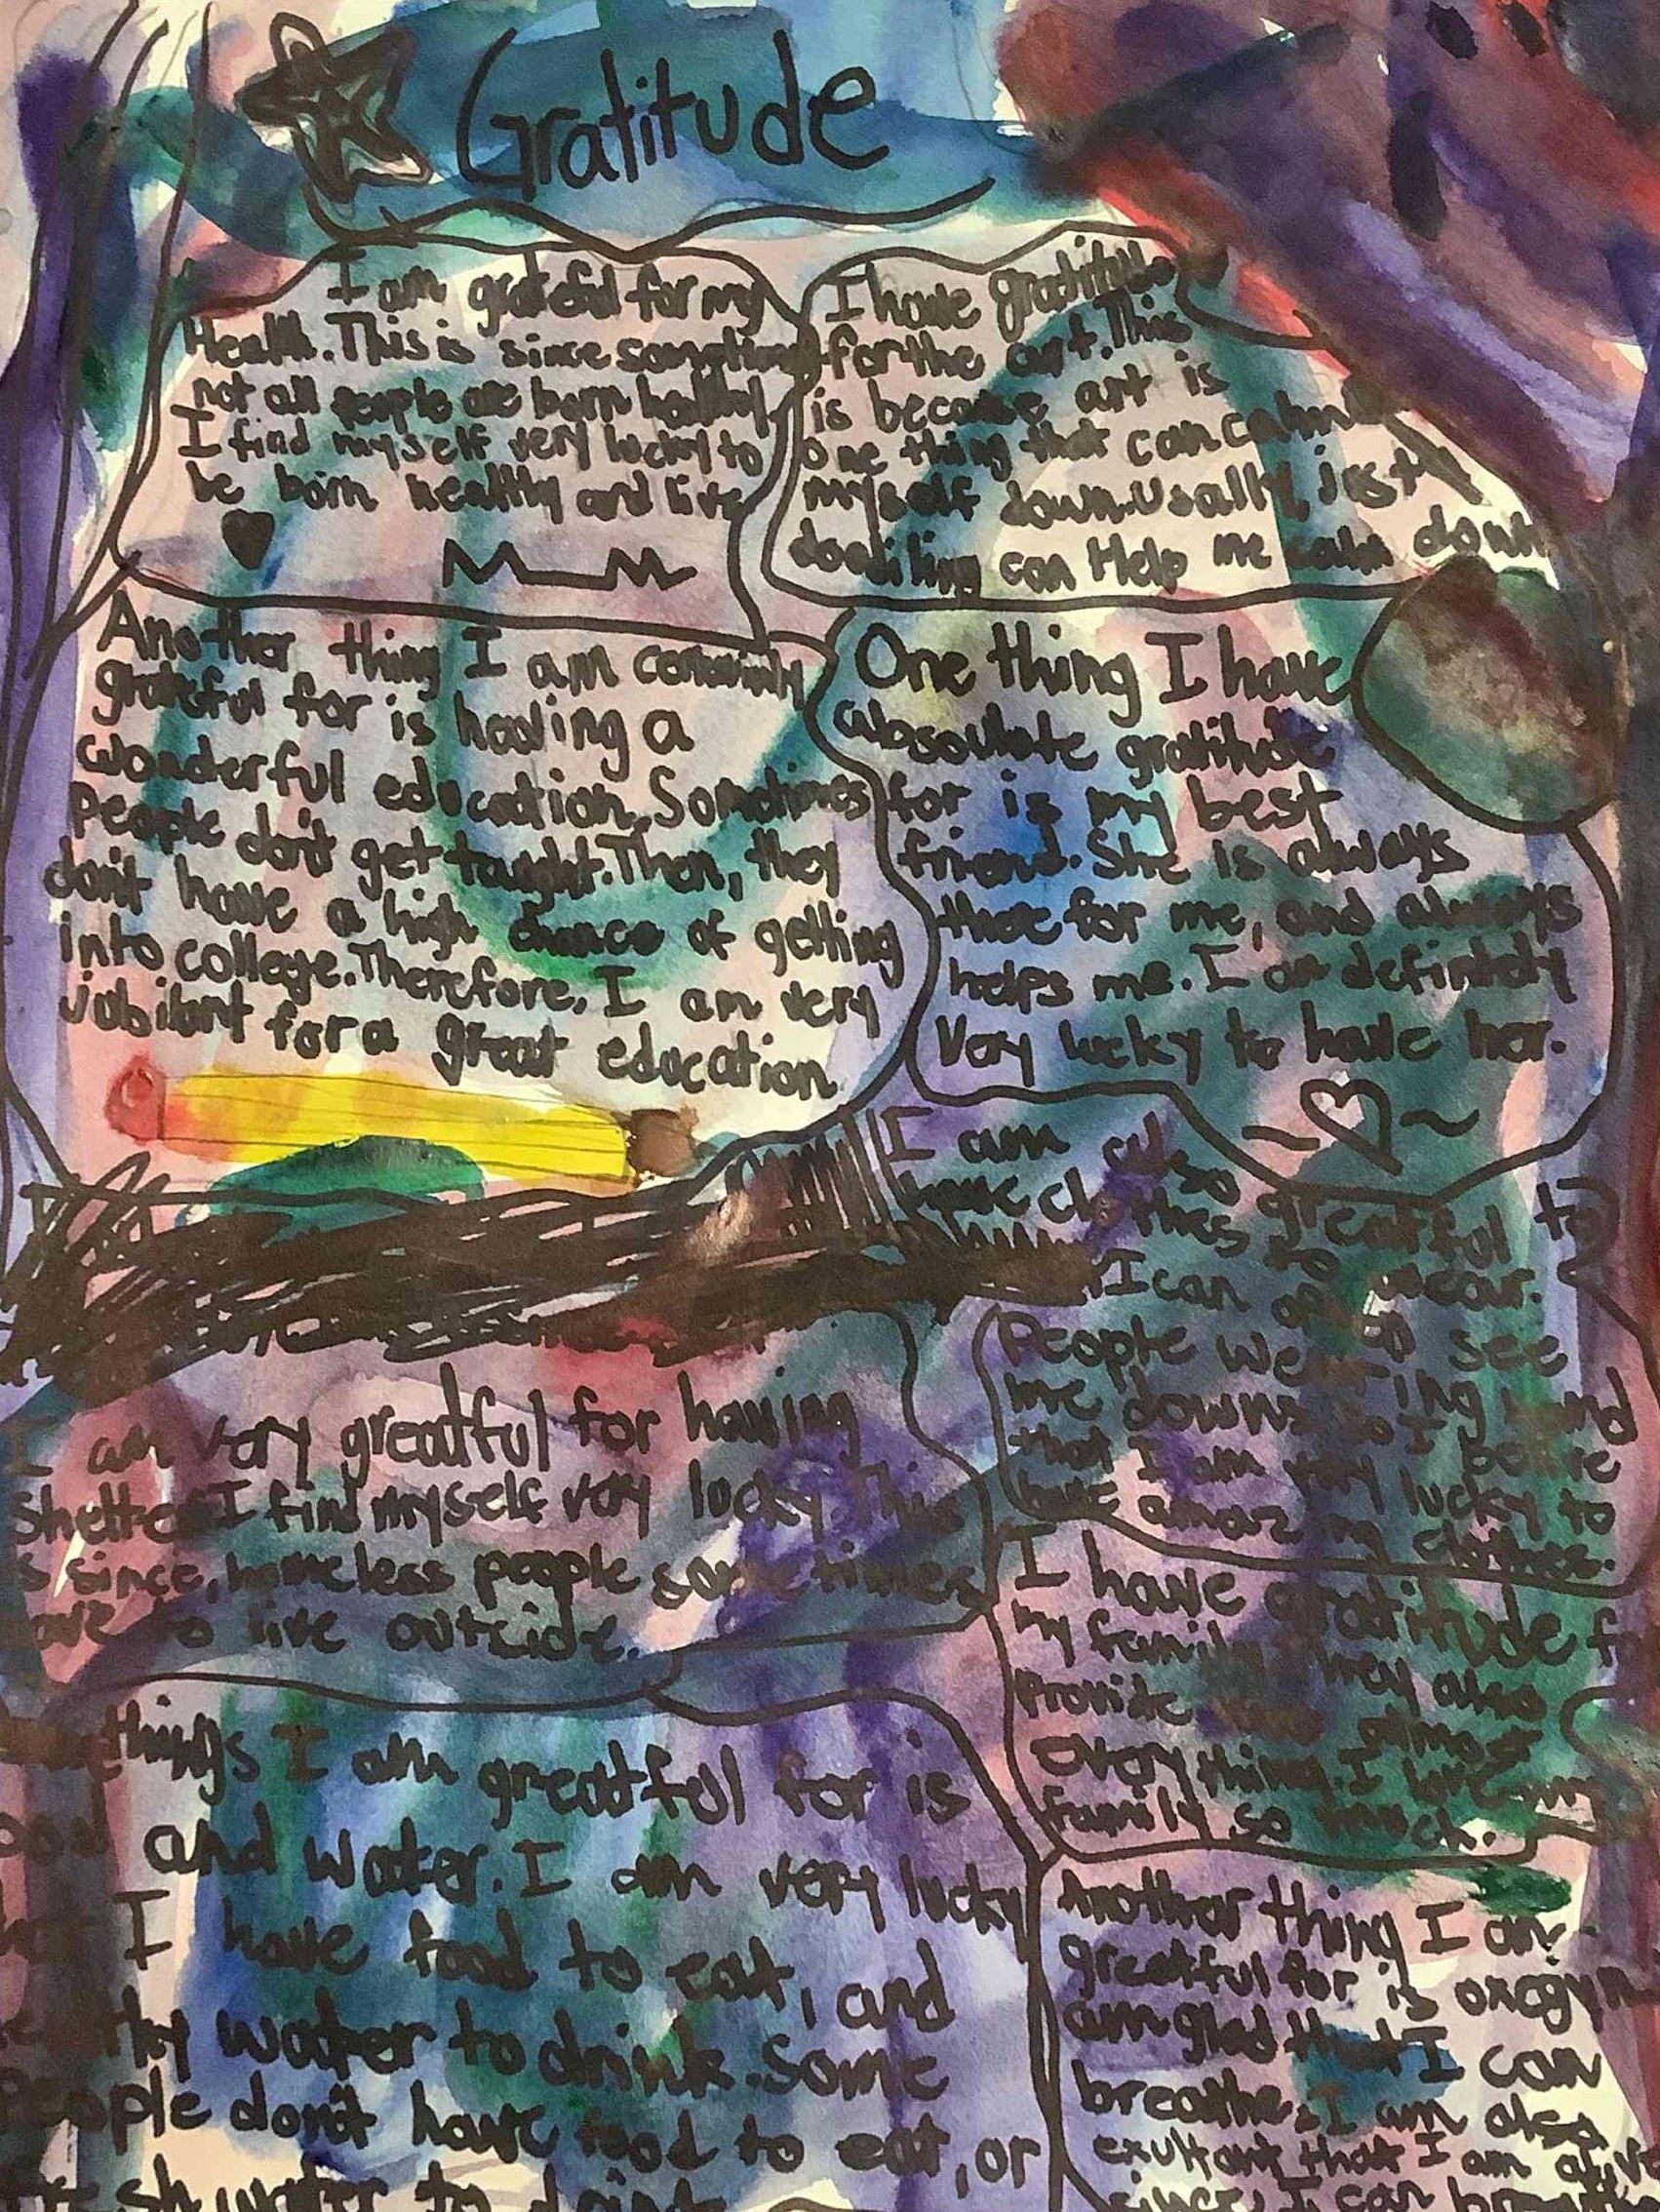 Gratitude
I am grateful for my
Health. This is since
not all people are born healthy
I find myself very lucky to
be born healthy and live
I have gratitude
for the art. This
is because art is
one thing that can calm
myself down. Usally, just
dooding can Help me calm down
Another thing I am
grateful for is having a
wonderful education. Sometimes
people don't get taught. Then, they
don't have a high chance of getting
into college. Therefore, I am very
jubilant for a great education
One thing I have
gratitude
for is my best
friend. She is always
there for me, and always
helps me. I am
very lucky to have her.
I am also greatful to
have clothes to wear.
I can see
People wearing
me down so I
that I am very lucky to
have clothes.
I am very greatful for having
shelter I find myself very lucky This
since, homeless people sometimes
to live outside.
I have gratitude
my family They also
Provide almost
everything. I love my
family so much.
things I am greatful for is
and water. I am very lucky
I have food to eat, and
water to drink. Some
People don't have food to eat, or
water to
Another thing I am
greatful for is oxogyn
am glad that I can
breathe. I am also
exultant that I am alive
since, I can